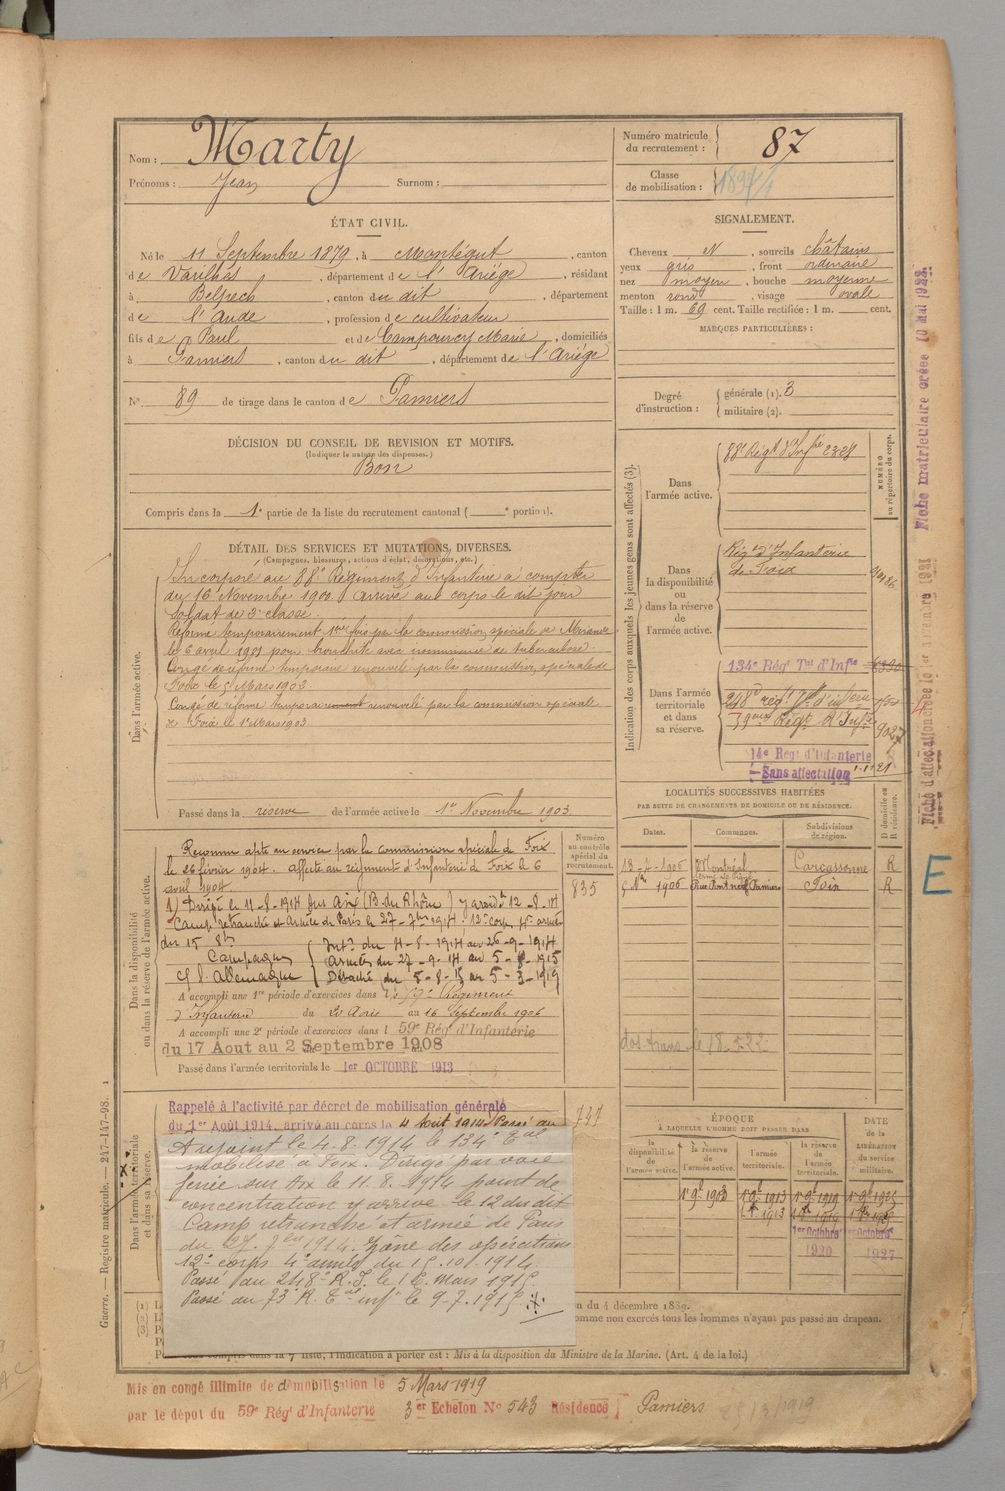 Nom : Marty
Prénoms : Jean Surnom :
Numéro matricule du recrutement : 87
Classe de mobilisation :
ÉTAT CIVIL.
Né le 11 Septembre 1879, à Montégut, canton
de Varilhes, département de l'Ariège, résidant
à Belpech, canton du dit, département
de l'Aude, profession de cultivateur
fils de Paul et de Campourcy Marie, domiciliés
à Pamiers, canton du dit, département de l'Ariège
N° 89 de tirage dans le canton de Pamiers
SIGNALEMENT.
Cheveux et, sourcils châtains
yeux gris, front ordinaire
nez moyen, bouche moyenne
menton rond, visage ovale
Taille : 1 m. 69 cent. Taille rectifiée : 1 m. cent.
MARQUES PARTICULIÈRES :
Degré d'instruction : générale (1). 3
militaire (2).
DÉCISION DU CONSEIL DE REVISION ET MOTIFS.
(Indiquer la nature des dispenses.)
Bon
Compris dans la 1e partie de la liste du recrutement cantonal ( e portion).
DÉTAIL DES SERVICES ET MUTATIONS DIVERSES.
(Campagnes, blessures, actions d'éclat, décorations, etc.)
Dans l'armée active.
Incorporé au 88e Régiment d'Infanterie à compter
du 16 Novembre 1900. Arrivé au corps le dit jour
Soldat de 2e classe.
Réformé temporairement 1ère fois par la commission spéciale de
le 6 avril 1901 pour bronchite avec de tuberculose.
Congé de réforme temporaire renouvelé par la commission spéciale de
Foix le 5 Mars 1902.
Congé de réforme renouvelé par la commission spéciale
de Foix le 1e Mars 1903.
Passé dans la réserve de l'armée active le 1er Novembre 1903.
Indication des corps auxquels les jeunes gens sont affectés (3).
NUMÉRO au répertoire du corps.
Dans l'armée active.
88e Régt d'Infie
Dans la disponibilité ou dans la réserve de l'armée active.
Régt d'Infanterie
de Foix
Dans l'armée territoriale et dans sa réserve.
134e Régt Tal d'Infie
248e
59e Régt d'Infie
14e Régt d'Infanterie
Sans affectation
Fiche matriculaire créée 10 Mai 1922
Fiche d'affectation créée le
LOCALITÉS SUCCESSIVES HABITÉES
PAR SUITE DE CHANGEMENTS DE DOMICILE OU DE RÉSIDENCE.
Dates. Communes. Subdivisions de région. D domicile ou R résidence.
1905 Montréal Carcassonne R
5 Nbre 1906 Rue Pont neuf Pamiers Foix R
E
Dans la disponibilité ou dans la réserve de l'armée active.
Numéro au contrôle spécial du recrutement.
835
Reconnu apte au service par la commission spéciale de Foix
le 26 février 1904. Affecté au régiment d'Infanterie de Foix le 6
avril 1904.
1) Dirigé le 11-8-1914 sur Aix (B. du Rhône) y arrivé 12-8-14
Camp retranché et Armée de Paris le 27-7bre 1914. 12e corps 4e armée
du 15 8bre
Campagne c/ l'Allemagne
Intr du 4-8-1914 au 26-9-1914
Armées du 27-9-14 au 5-8-1915
Détaché du 5-8-15 au 5-3-1919
A accompli une 1re période d'exercices dans le 59e Régiment
d'Infanterie du 20 Août au 16 Septembre 1906
A accompli une 2e période d'exercices dans l 59e Régt d'Infanterie
du 17 Aout au 2 Septembre 1908
Passé dans l'armée territoriale le 1er OCTOBRE 1913
Dans l'armée territoriale et dans sa réserve.
Rappelé à l'activité par décret de mobilisation générale
du 1er Août 1914, arrivé au corps le 4 Août 1914. Passé au
A rejoint le 4.8.1914 le 134e Tal
mobilisé à Foix. Dirigé par voie
ferrée sur Aix le 11.8.1914 point de
concentration y arrivé le 12 du dit
Camp retranché et armée de Paris
du 27.7bre 1914. Zône des opérations
12e corps 4e armée du 15.10.1914.
Passé au 248e R.I. le 16 Mars 1915
Passé au 73e R. Tal inf le 9-7-1915
ÉPOQUE
À LAQUELLE L'HOMME DOIT PASSER DANS
la disponibilité de l'armée active. la réserve de l'armée active. l'armée territoriale. la réserve de l'armée territoriale. DATE de la LIBÉRATION du service militaire.
1er 9bre 1903 1er 9bre 1913 1er 9bre 1919 1er 9bre 1925
1er Octobre 1920 1er Octobre 1927
Guerre. — Registre matricule. — 247-147-98.
du 4 décembre 1889.
comme non exercés tous les hommes n'ayant pas passé au drapeau.
liste, l'indication à porter est : Mis à la disposition du Ministre de la Marine. (Art. 4 de la loi.)
Mis en congé illimité de démobilisation le 5 Mars 1919
par le dépôt du 59e Régt d'Infanterie 3er Echelon No 543 Résidence Pamiers